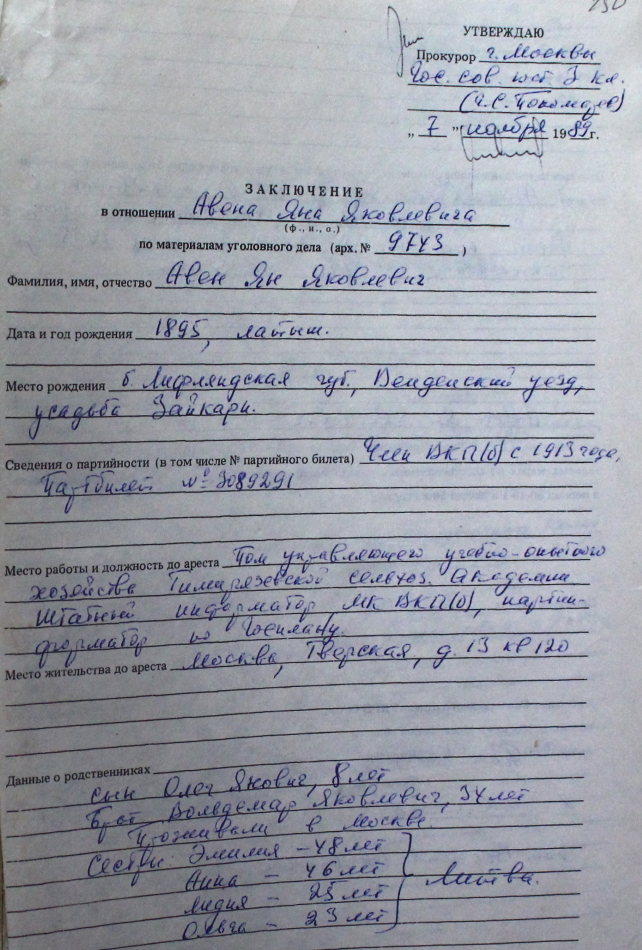 УТВЕРЖДАЮ
Прокурор г. Москвы
Гос. сов. юст. 3 кл.
„ 7 " ноября 1989г.
ЗАКЛЮЧЕНИЕ
в отношении Авена Яна Яковлевича
(ф., и., о.)
по материалам уголовного дела (арх. № 9743,
Фамилия, имя, отчество Авен Ян Яковлевич
Дата и год рождения 1895, латыш.
Место рождения б. Лифляндская губ., Венденский уезд,
усадьба Зайкари.
Сведения о партийности (в том числе № партийного билета) Член ВКП(б) с 1913 года,
Партбилет № 3089291
Место работы и должность до ареста Пом. управляющего учебно-опытного
хозяйства Тимирязевской сельхоз. Академии
штатный информатор МК ВКП(б), партин-
форматор по Госплану.
Место жительства до ареста Москва, Тверская, д. 13 кв 120
Данные о родственниках
сын Олег Якович, 8 лет
Брат Волдемар Яковлевич, 34 лет
Проживали в Москве.
Сестры: Эмилия – 48 лет
Анна – 46 лет
Лидия – 25 лет
Ольга – 23 лет
Литва.